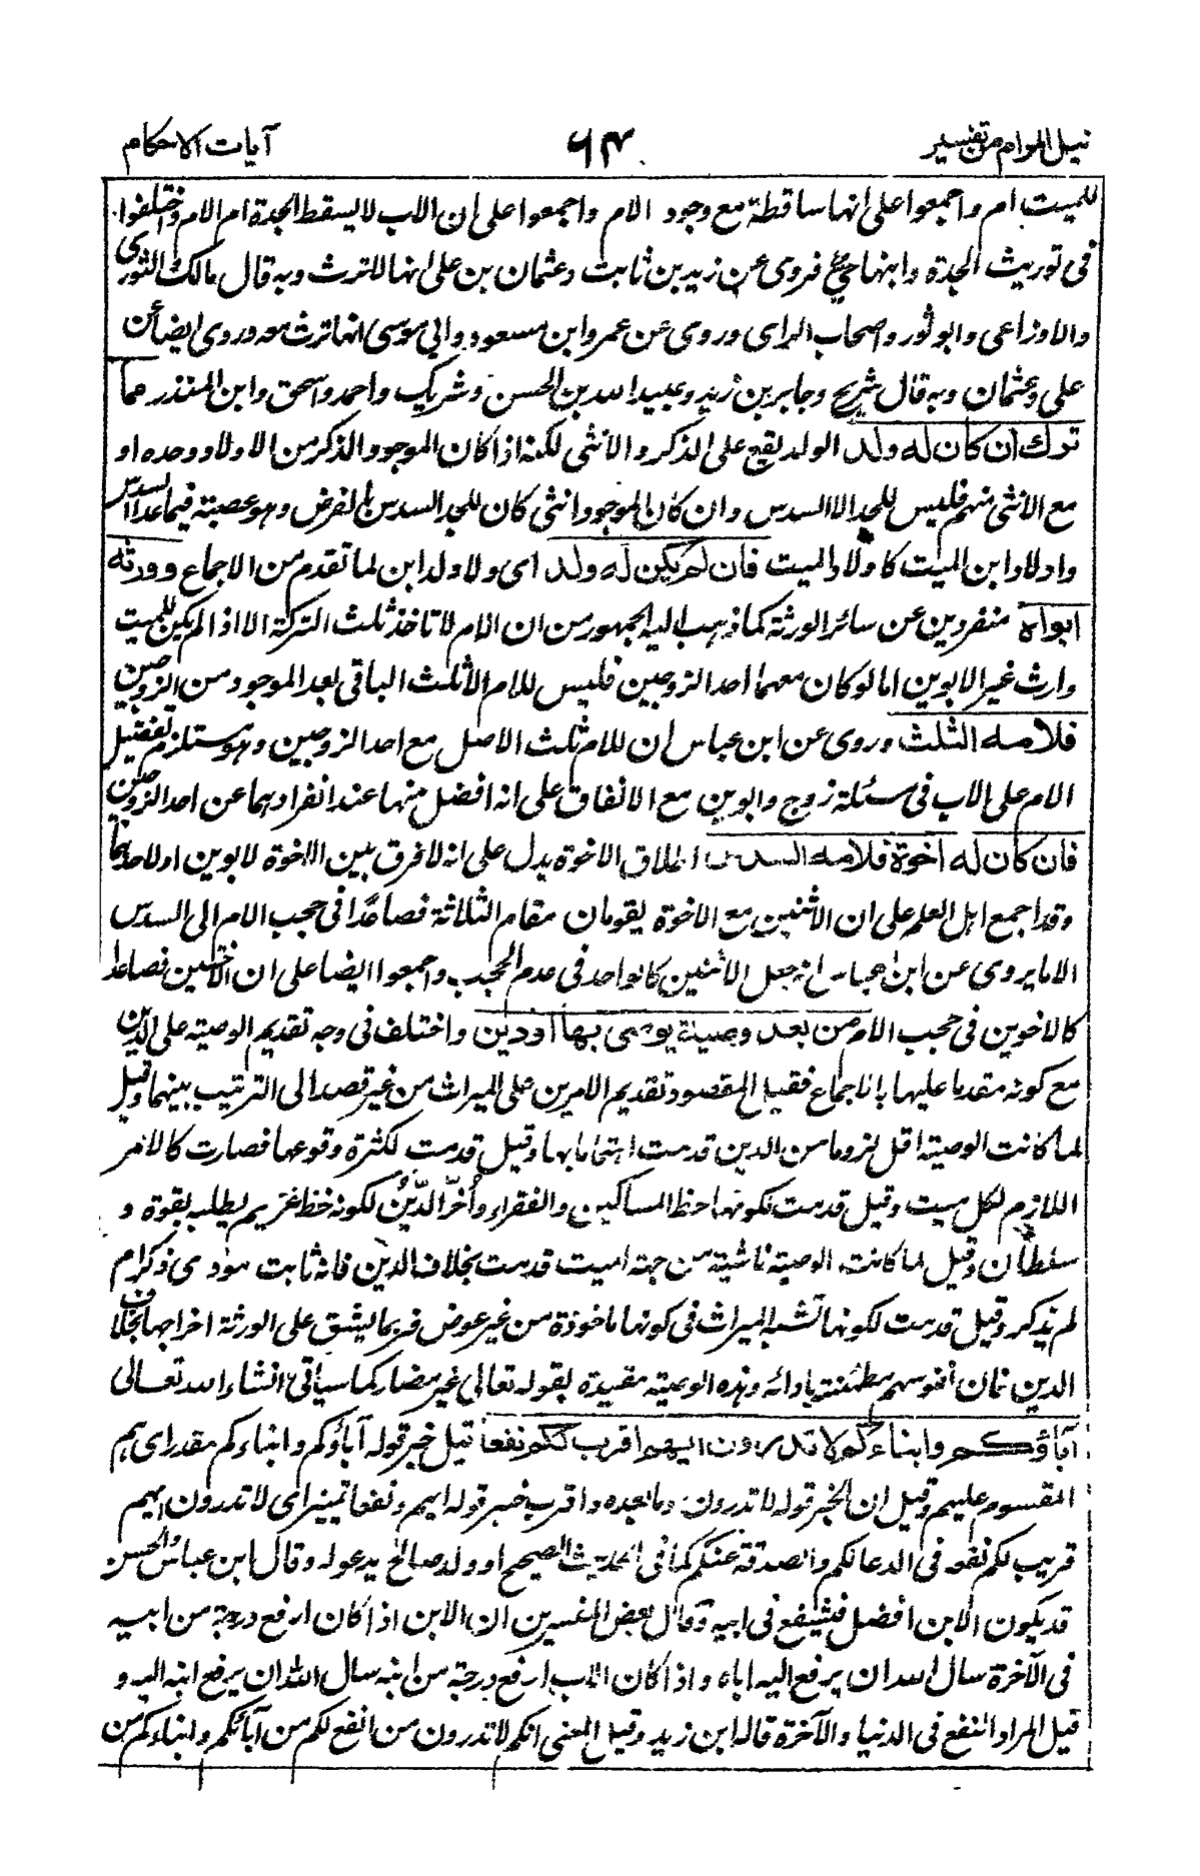 نيل المرام من تفسير
٦٤
آيات الاحكام
للميت ام واجمعوا على انها ساقطة مع وجود الام واجمعوا على ان الاب لا يسقط الجدة ام الام واختلفوا
فى توريث الجدة وابنها حيّ فروى عن زيد بن ثابت وعثمان بن على انها لا ترث وبه قال مالك والثورى
والاوزاعى وابو ثور واصحاب الراى وروى عن عمر وابن مسعود وابى موسى انها ترث معه وروى ايضا عن
على وعثمان وبه قال شريح وجابر بن زيد وعبيد الله بن الحسن وشريك واحمد واسحق وابن المنذر مما
ترك ان كان له ولد الولد يقع على الذكر والانثى لكنه اذا كان الموجود الذكر من الاولاد وحده او
مع الانثى منهم فليس للجد الا السدس وان كان الموجود انثى كان للجد السدس بالفرض وهو عصبة فيما عدا السدس
واولاد ابن الميت كاولاد الميت فان لم يكن له ولد اى ولا ولد ابن لما تقدم من الاجماع وورثه
ابواه منفردين عن سائر الورثة كما ذهب اليه الجمهور من ان الام لا تاخذ ثلث التركة الا اذا لم يكن للميت
وارث غير الابوين اما لو كان معهما احد الزوجين فليس للام الا ثلث الباقى بعد الموجود من الزوجين
فلامه الثلث وروى عن ابن عباس ان للام ثلث الاصل مع احد الزوجين وهو يستلزم تفضيل
الام على الاب فى مسئلة زوج وابوين مع الاتفاق على انه افضل منها عند انفرادهما عن احد الزوجين
فان كان له اخوة فلامه السدس اطلاق الاخوة يدل على انه لا فرق بين الاخوة لابوين او لاحدهما
وقد اجمع اهل العلم على ان الاثنين مع الاخوة يقومان مقام الثلاثة فصاعدًا فى حجب الام الى السدس
الا ما يروى عن ابن عباس انه جعل الاثنين كالواحد فى عدم الحجب واجمعوا ايضا على ان الاختين فصاعدا
كالاخوين فى حجب الام من بعد وصية يوصى بها او دين واختلف فى وجه تقديم الوصية على الدين
مع كونه مقدما عليها بالاجماع فقيل المقصود تقديم الامرين على الميراث من غير قصد الى الترتيب بينهما وقيل
لما كانت الوصية اقل لزوما من الدين قدمت اهتماما بها وقيل قدمت لكثرة وقوعها فصارت كالامر
اللازم لكل ميت وقيل قدمت لكونها حظ المساكين والفقراء وأُخّر الدّين لكونه حظ غريم يطلبه بقوة و
سلطان وقيل لما كانت الوصية ناشية من جهة الميت قدمت بخلاف الدين فانه ثابت مؤدى ذكر ام
لم يذكر وقيل قدمت لكونها تشبه الميراث فى كونها ماخوذة من غير عوض فربما يشق على الورثة اخراجها بخلاف
الدين فان نفوسهم مطمئنة بادائه وهذه الوصية مقيدة بقوله تعالى غير مضار كما سياتى انشاء الله تعالى
آباؤكم وابناءكم لا تدرون ايهم اقرب لكم نفعا قيل خبر قوله آباؤكم وابناءكم مقدر اى هم
المقسوم عليهم وقيل ان الخبر قوله لا تدرون وما بعده واقرب خبر قوله ايهم ونفعا تميز اى لا تدرون ايهم
قريب لكم نفعه فى الدعاء لكم والصدقة عنكم كما فى الحديث الصحيح او ولد صالح يدعو له وقال ابن عباس والحسن
قد يكون الابن افضل فيشفع فى ابيه وقال بعض المفسرين ان الابن اذا كان ارفع درجة من ابيه
فى الآخرة سال الله ان يرفع اليه اباه واذا كان الاب ارفع درجة من ابنه سال الله ان يرفع ابنه اليه و
قيل المراد النفع فى الدنيا والآخرة قاله ابن زيد وقيل المعنى انكم لا تدرون من انفع لكم من آبائكم وابناءكم من